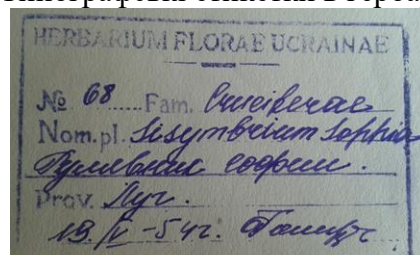 HERBARIUM FLORAE UCRAINAE
№ 68 Fam. Cruciferae
Nom.pl. Sisymbrium Sophia
Гулявник софии.
Prov. Луг.
19./V-54г.